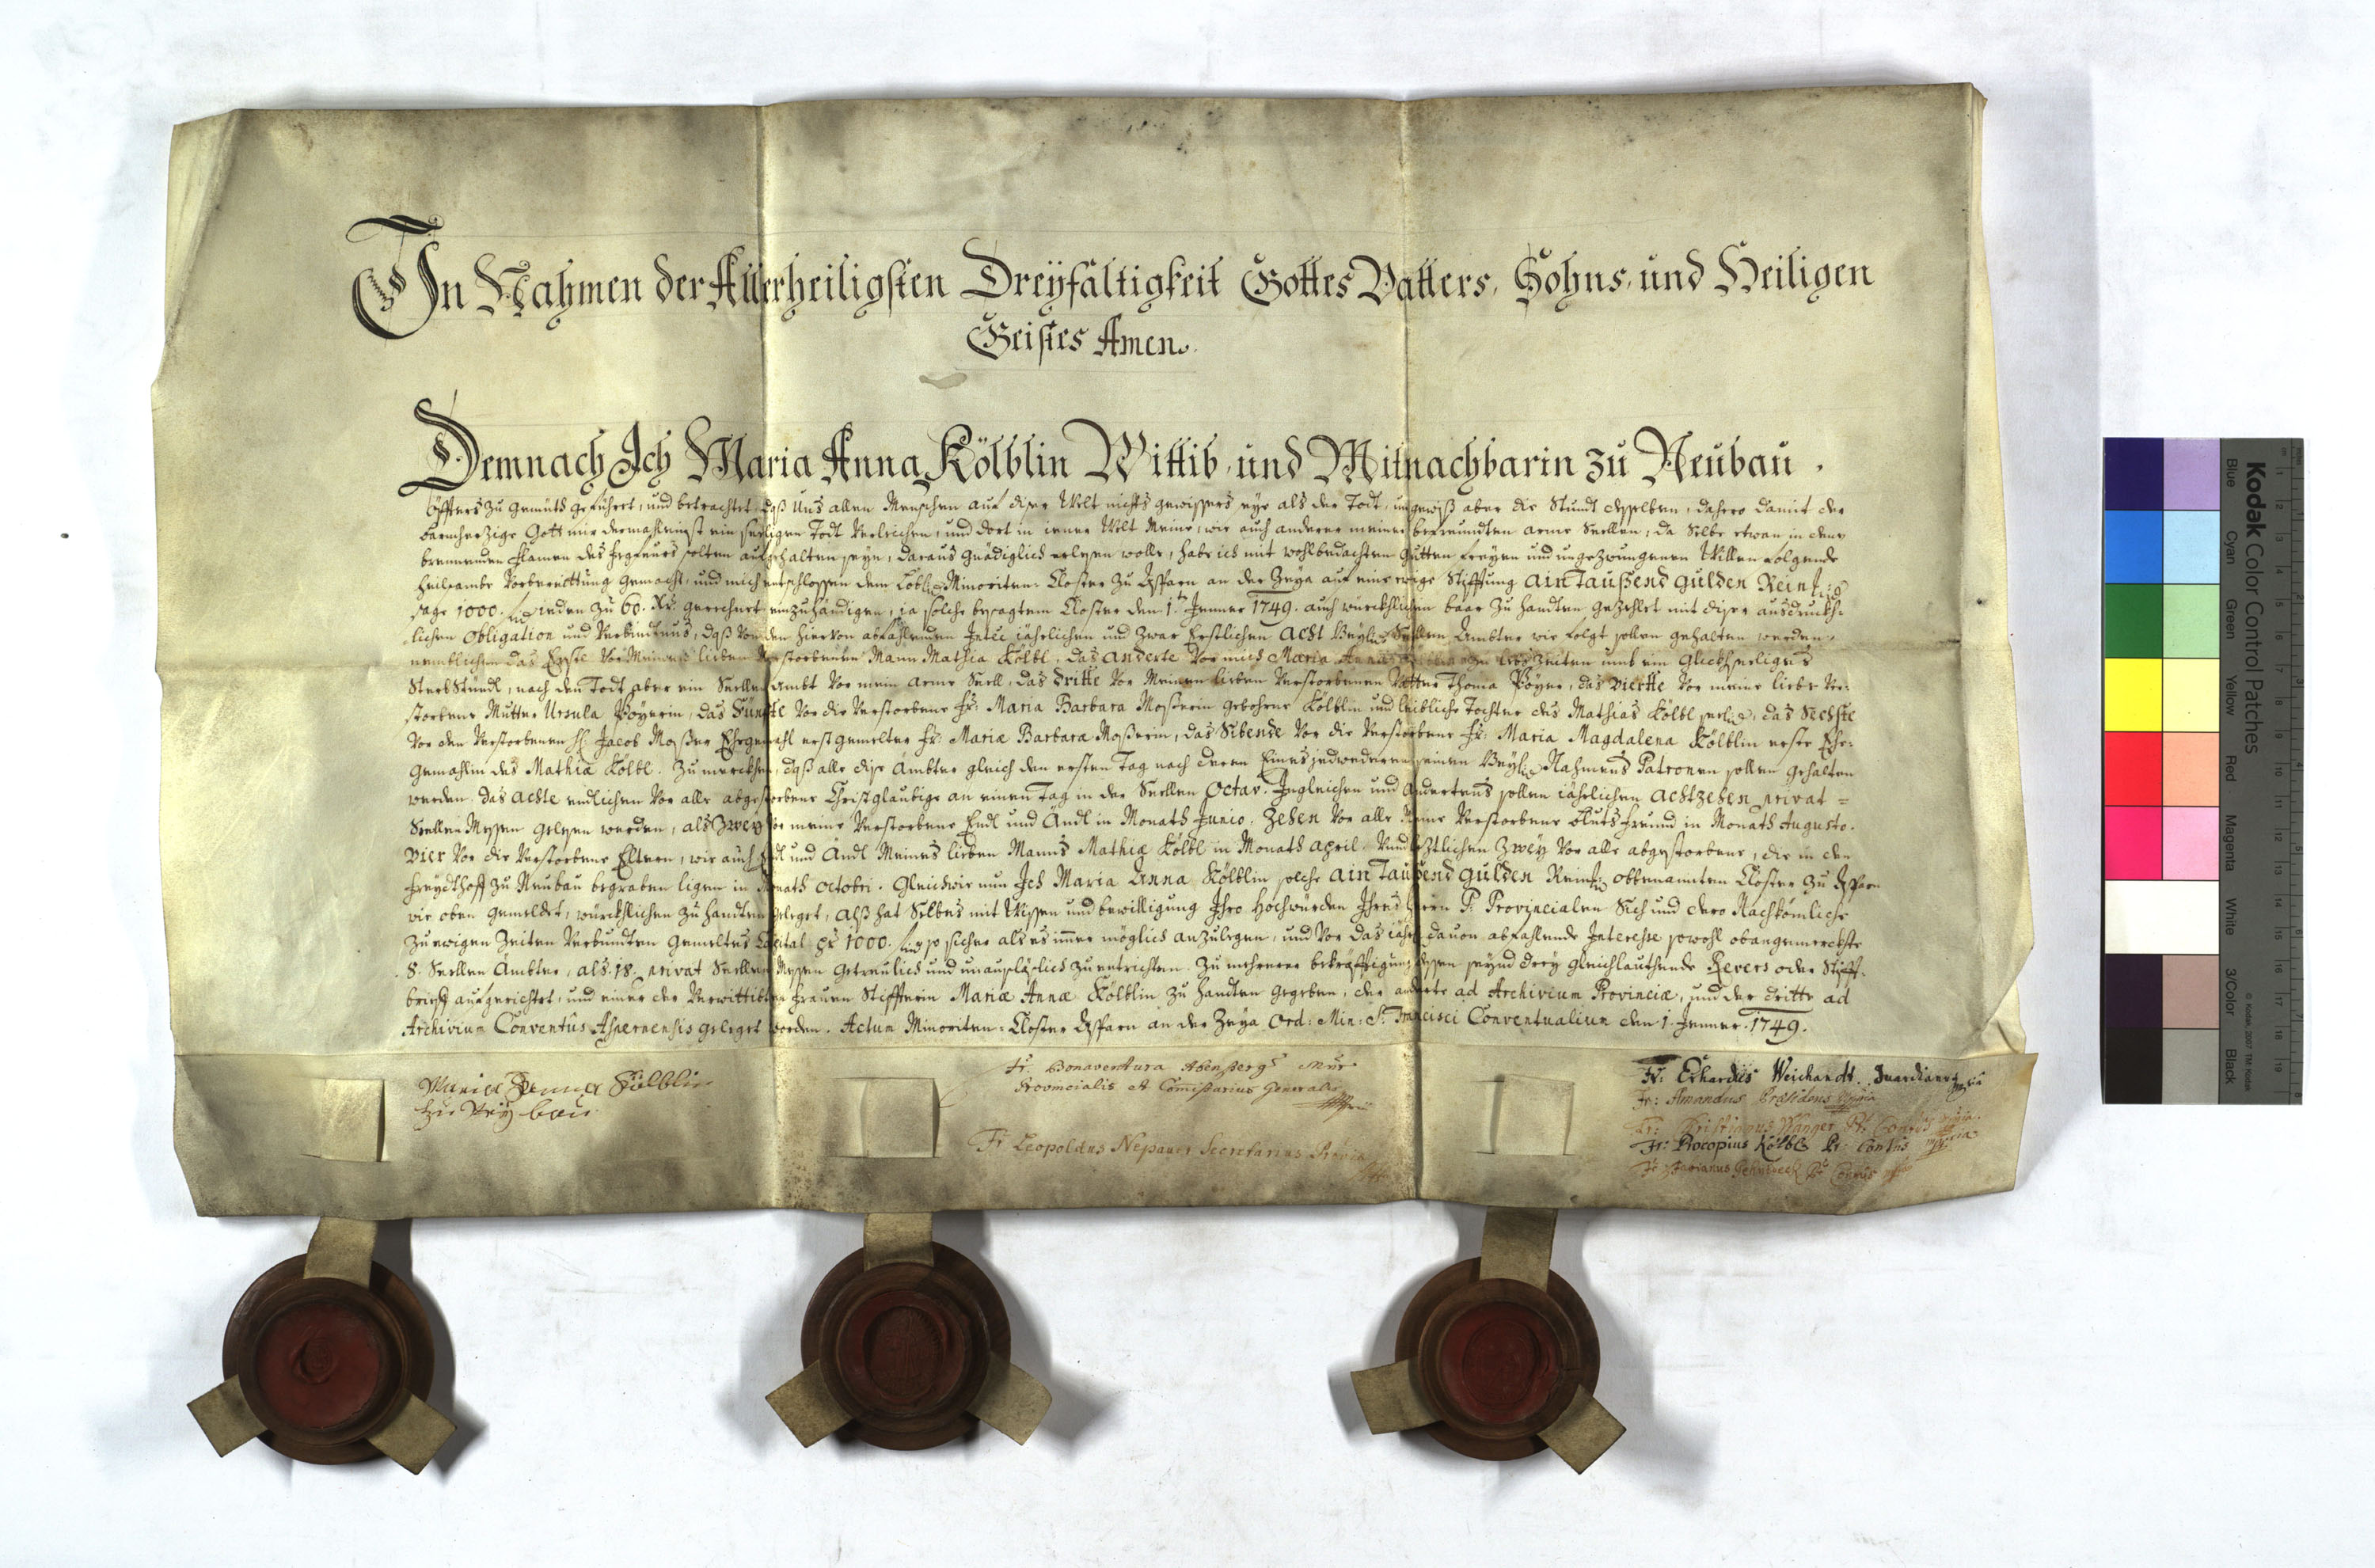 In Nahmen der Allerheiligsten Dreyfaltigkeit Gottes Vatters, Sohns, und Heiligen
Geistes Amen.
Demnach Ich Maria Anna Kölblin Wittib und Mitnachbarin zu Neubau.
öffters zu gemüth geführet, und betrachtet daß Uns allen Menschen auf diser Welt nichts gewissers seye als der Todt, ungewiß aber die Stundt desselben, dahero damit der
barmherzige Gott mir dermahleinst ein seeligen Todt Verleichen, und dort in iener Welt Meine, wie auch anderer meiner befreundten arme Seellen, da Selbe etwan in denen
brennenden Flamen des Fegfeurs solten aufgehalten seyn, daraus gnädiglich erlesen wolle, habe ich mit wohlbedachten gutten freyen und ungezwungenen Willen folgende
heilsambe Vorbereittung gemacht, und mich entschlossen dem Löbl. Minoriten Closter zu Asparn an der Zeya auf eine ewige Stifftung ain Taußend gulden Reinl.
sage 1000. f jeden zu 60. Xr. gerechnet einzuhändigen, ja solche besagtem Closter den 1.ten Jenner 1749. auch würckhlichen baar zu handten gezehlet mit diser ausdruckh-
lichen Obligation und Verbindtnus, daß von den hiervon abfahlenden Inteẽ jährlichen und zwar Erstlichen Acht Seellen Ambter wie folgt sollen gehalten werden,
nemblichen das Erste Vor Meinen lieben Verstorbenen Mann Mathia Kölbl, das anderte Vor mich Maria Anna zeiten umb ein Glickhseeliges
Sterb Stündl, nach den Todt aber ein Seellen Ambt Vor mein arme Seell, das dritte Vor Meinen lieben Verstorbenen Vatter Thoma Pöyer, das vierte Vor meine liebe Ver-
storbene Mutter Ursula Pöyerin, das Fünfte Vor die Verstorbene Fr: Maria Barbara Moßerin gebohrne Kölblin und leibliche Tochter des Mathias Kölbl seelig, das Sechste
Vor den Verstorbenen H: Jacob Moßer Ehegemahl erstgemelter Fr: Mariæ Barbaræ Moßerin, das Sibende Vor die Verstorbene Fr: Maria Magdalena Kölblin erste Ehe-
Gemahlin des Mathiæ Kölbl. Zu merckhen, daß alle dise Ambter gleich den ersten Tag nach deren Eines jedwederen seinen Nahmens Patronen sollen gehalten
werden. das achte endlichen Vor alle abgestorbene Christglaubige an einen Tag in der Seellen Octav. Ingleichen und Andertens sollen jährlichen Achtzehen privat =
Seellen Messen gelesen werden, als Zwey Vor meine Verstorbene Endl und Ändl in Monath Junio. Zehen Vor alle Meine Verstorbene bluts freund in Monath Augusto.
Vier Vor die Verstorbene Eltern, wie auch Endl und Andl Meines lieben Manns Mathiæ Kölbl in Monath April. Und leztlichen Zwey Vor alle abgestorbene, die in den
Freydthoff zu Neubau begraben ligen in Monath Octobri. Gleichwie nun Ich Maria Anna Kölblin solche ain Taußend gulden Reinl. obbenannten Closter zu Asparn
wie oben gemeldet, würckhlichen zu handten geleget, Alß hat Selbes mit Wissen und bewilligung Ihro Hochwürden Ihres Herrn P. Provincialen Sich und dero Nachkömliche
zu ewigen Zeiten Verbundten gemeltes Capital pr 1000. f so sicher als es imer möglich anzulegen, und Vor das jährl. dauon abfahlende Interesse sowohl obangemerckhte
8. Seellen Ämbter, als 18. privat Seellen Messen getreulich und unausläslich zu entrichten. Zu mehrerer bekräfftigung dessen seynd drey gleichlauthende Revers oder Stifft-
brieff aufgerichtet, und einer der Verwittibten Frauen Stiffterin Mariæ Annæ Kölblin zu handten gegeben, der anderte ad Archivium Provinciæ, und der dritte ad
Archivium Conventûs Aspernensis geleget worden. Actum Minoriten-Closter Asparn an der Zeya Ord: Min: S. Francisci Conventualium den 1. Jenner. 1749.
Maria Anna Kölblin
zu Ney bau
Fr. Bonaventura Abensperg Mgr
Provincialis et Comissarius Generalis
Fr. Leopoldus Nepauer Secretarius Provinciæ
Fr: Erhardus Weichandt. Guardianus
Fr: Amandus Præsidens
Fr: Christianus Wanger Pr: Contus
Fr: Procopius Kölbl Pr: Contus
Fr: Pr. Contus
Kodak Color Control Patches
Blue Cyan Green Yellow Red Magenta White 3/Color Black
© Kodak, 2007 TM: Kodak